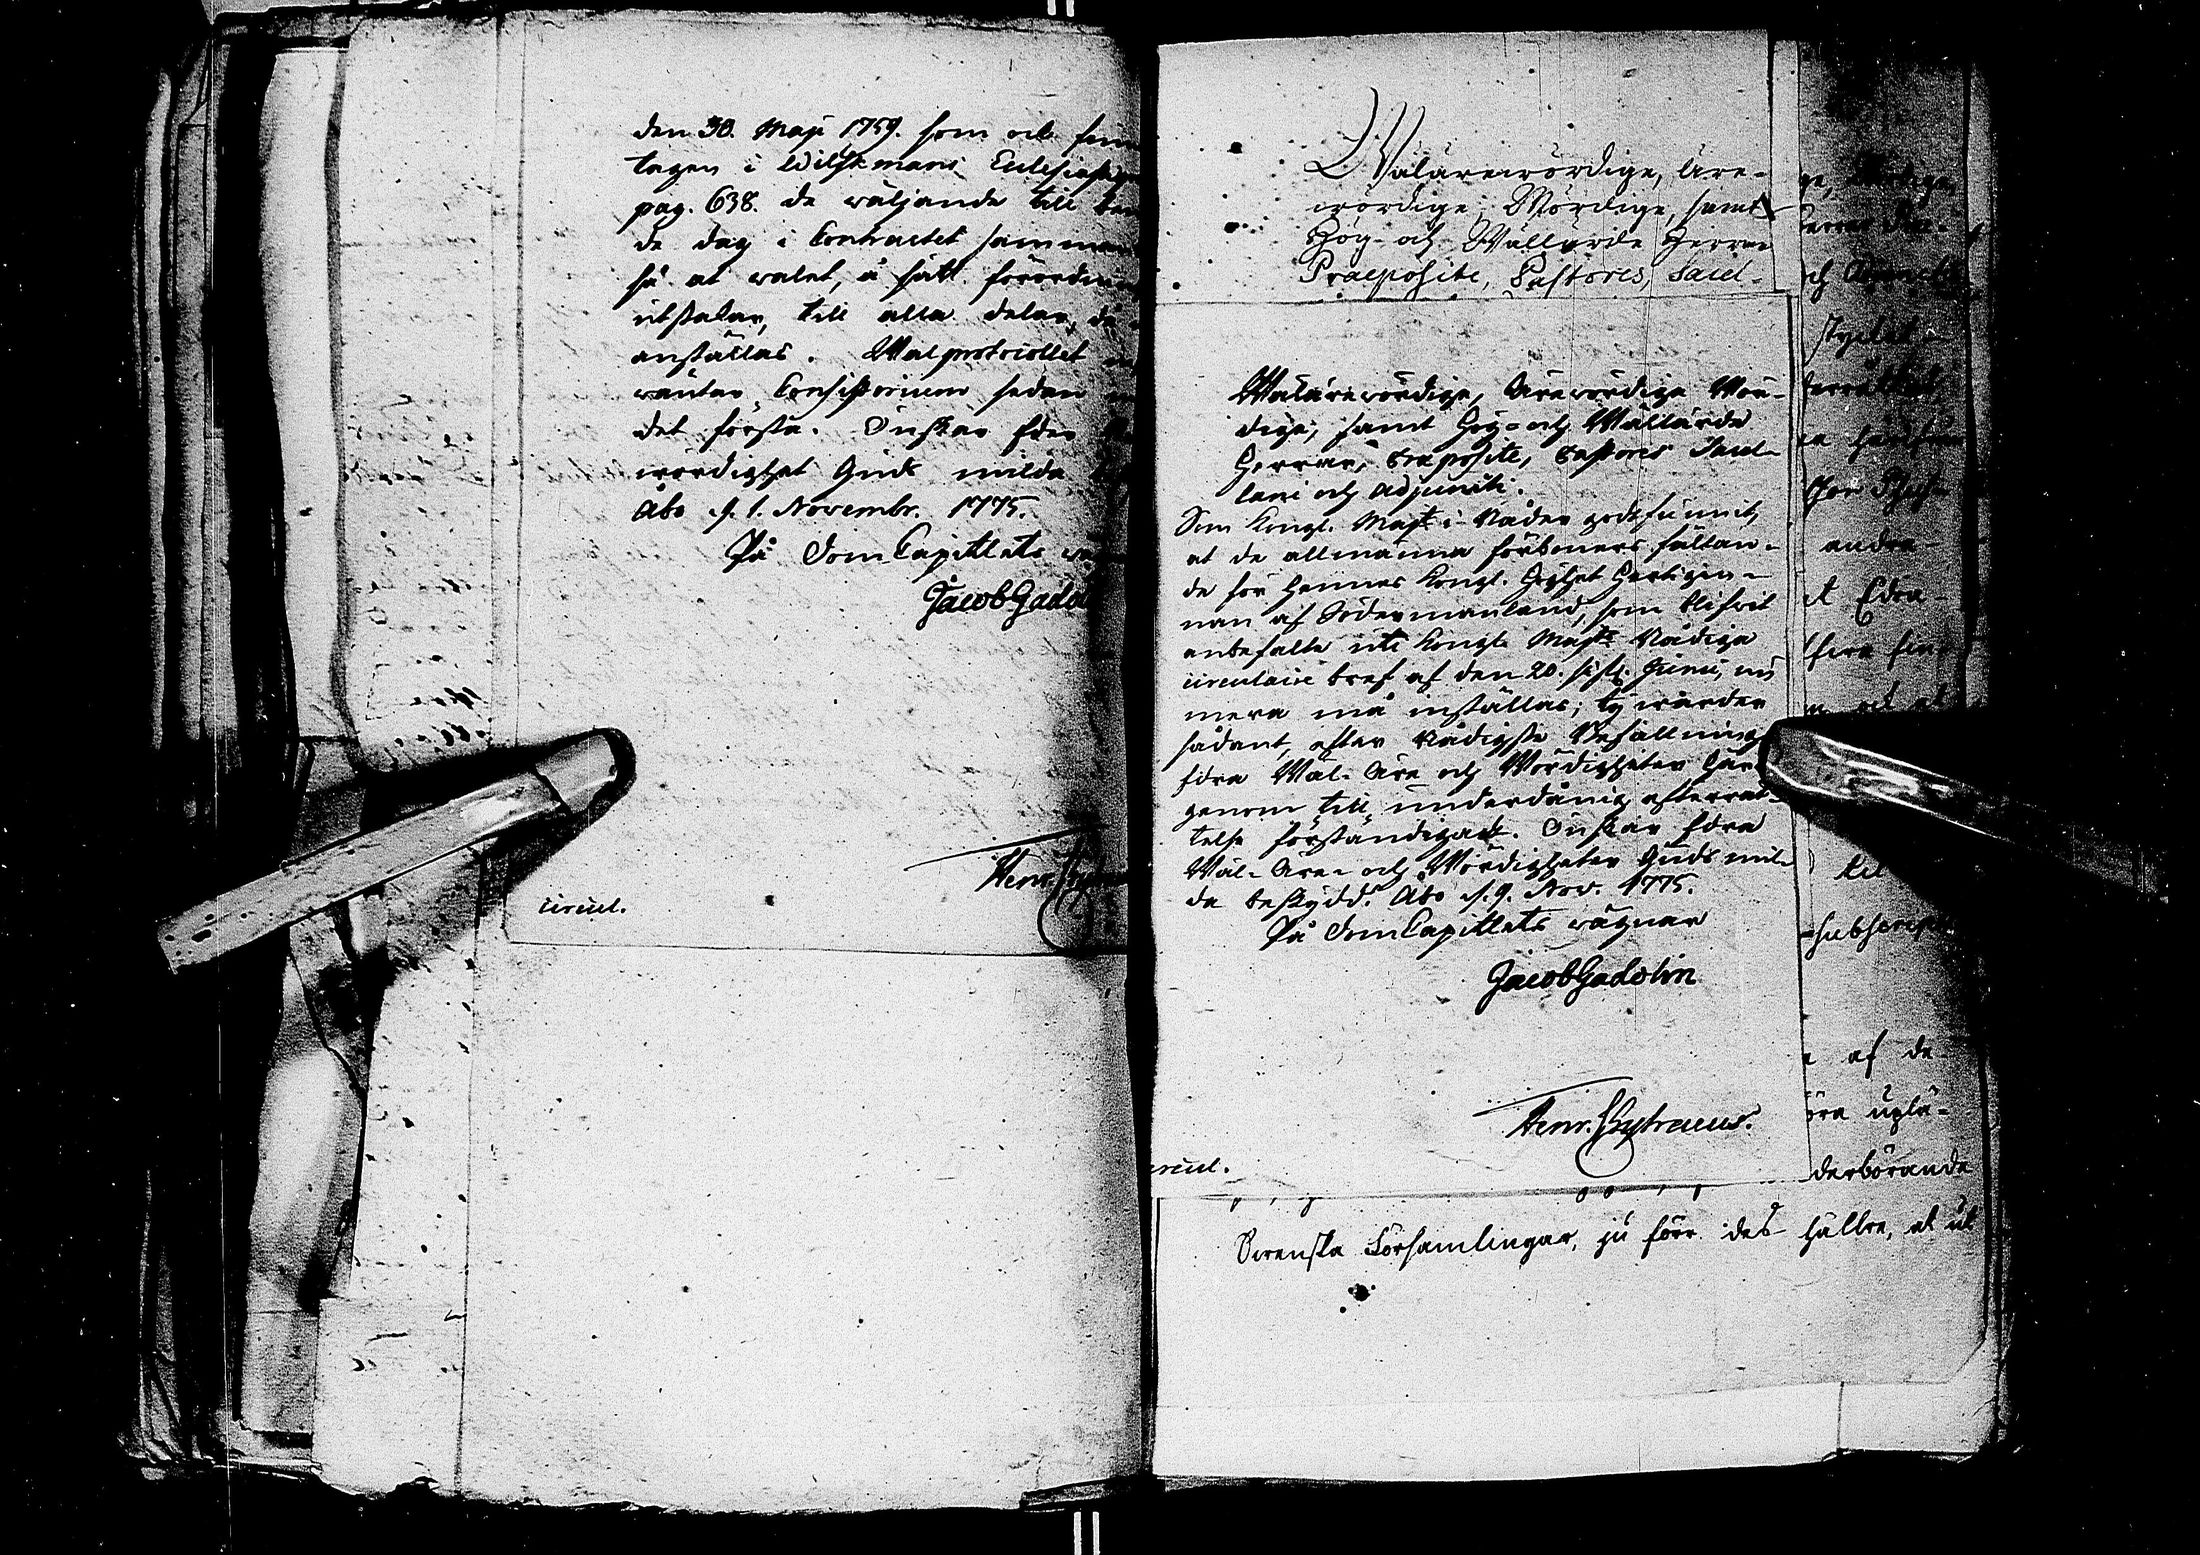 den 30. Maji 1759. som ock finn
tagen i Wilskmans Ecclesiast
pag. 638. de wäljande till
de dag i Contractet samman
så at walet, å sätt förordnin
utstakar, till alla delar, då
anställas. Walprotocollet
wäntar Consistorium sedan
det första. Önskar Eder
wördighet Guds milda
Åbo d. 1. Novembr. 1775.
På DomCapitlets wä
Jacob Gadol
Henr.
circul.
Wälärewördige, Äre-
wördige, Wördige, samt
Hög- och Wällärde Herrar
Praeposite, Pastores, Sacel-
Wälärewördige, Ärewördige Wör-
dige, samt Hög- och Wällärde
Herrar, Præposite, Pastores Sacel-
lani och Adjuncti.
Som Kongl. Majt i Nåder godtfunnit,
at de allmänna förböners hållan-
de för Hennes Kongl. Höghet Hertigin-
nan af Södermanland, som blifwit
anbefalte uti Kongl. Majts Nådiga
circulaire bref af den 20. sistl. Junii, nu
mera må inställas; ty warder
sådant, efter Nådigste Befallning
Edra Wäl- Äre och Wördigheter här
genom till underdånig efterrät-
telse förständigadt. Önskar Edra
Wäl- Äre- och Wördigheter Guds mil-
da beskydd. Åbo d. 9. Nov. 1775.
På DomCapitlets wägnar
Jacob Gadolin
Henr. Lytraeus.
rcul.
andra
af de-
öra uplä-
derbörande
Swenska Församlingar, ju förr des hällre, at ut